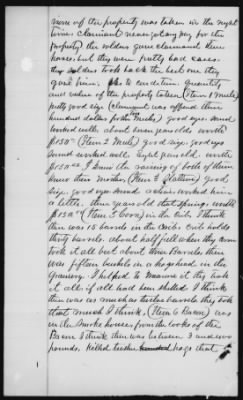 none of the property was taken in the night
time claimant never got any pay for the
property the soldiers gave claimant three
horses but they were pretty bad cases
the soldiers took back the best one they
gave him. As to condition quantity
and value of the property taken (Item 1 Mule)
pretty good size (claimant was offered three
hundred dollars for the Mule) good eyes sound
worked well about seven years old worth
$150.00 (Item 2 Mule) good size good eyes
sound worked well Eight years old worth
$150.00 I knew the raising of both of them
knew their mother, (Item 3 Stallion) good
size good eyes sound claimant worked him a
little three years old that spring worth
$150.00 (Item 5 Corn) in the Crib I think
there was 15 barrels in the Crib Crib holds
thirty barrels about half full when they came
took it all but about three Barrels there
was fifteen bushels in a hogshead in the
Granary I helped to measure it they took
it all if all had been shelled I think
there was as much as twelve barrels they took
that much I think, (Item 6 Bacon) was
in the smoke house, from the looks of the
Bacon I think there was between 3 and 400
pounds. Killed twelve hogs that